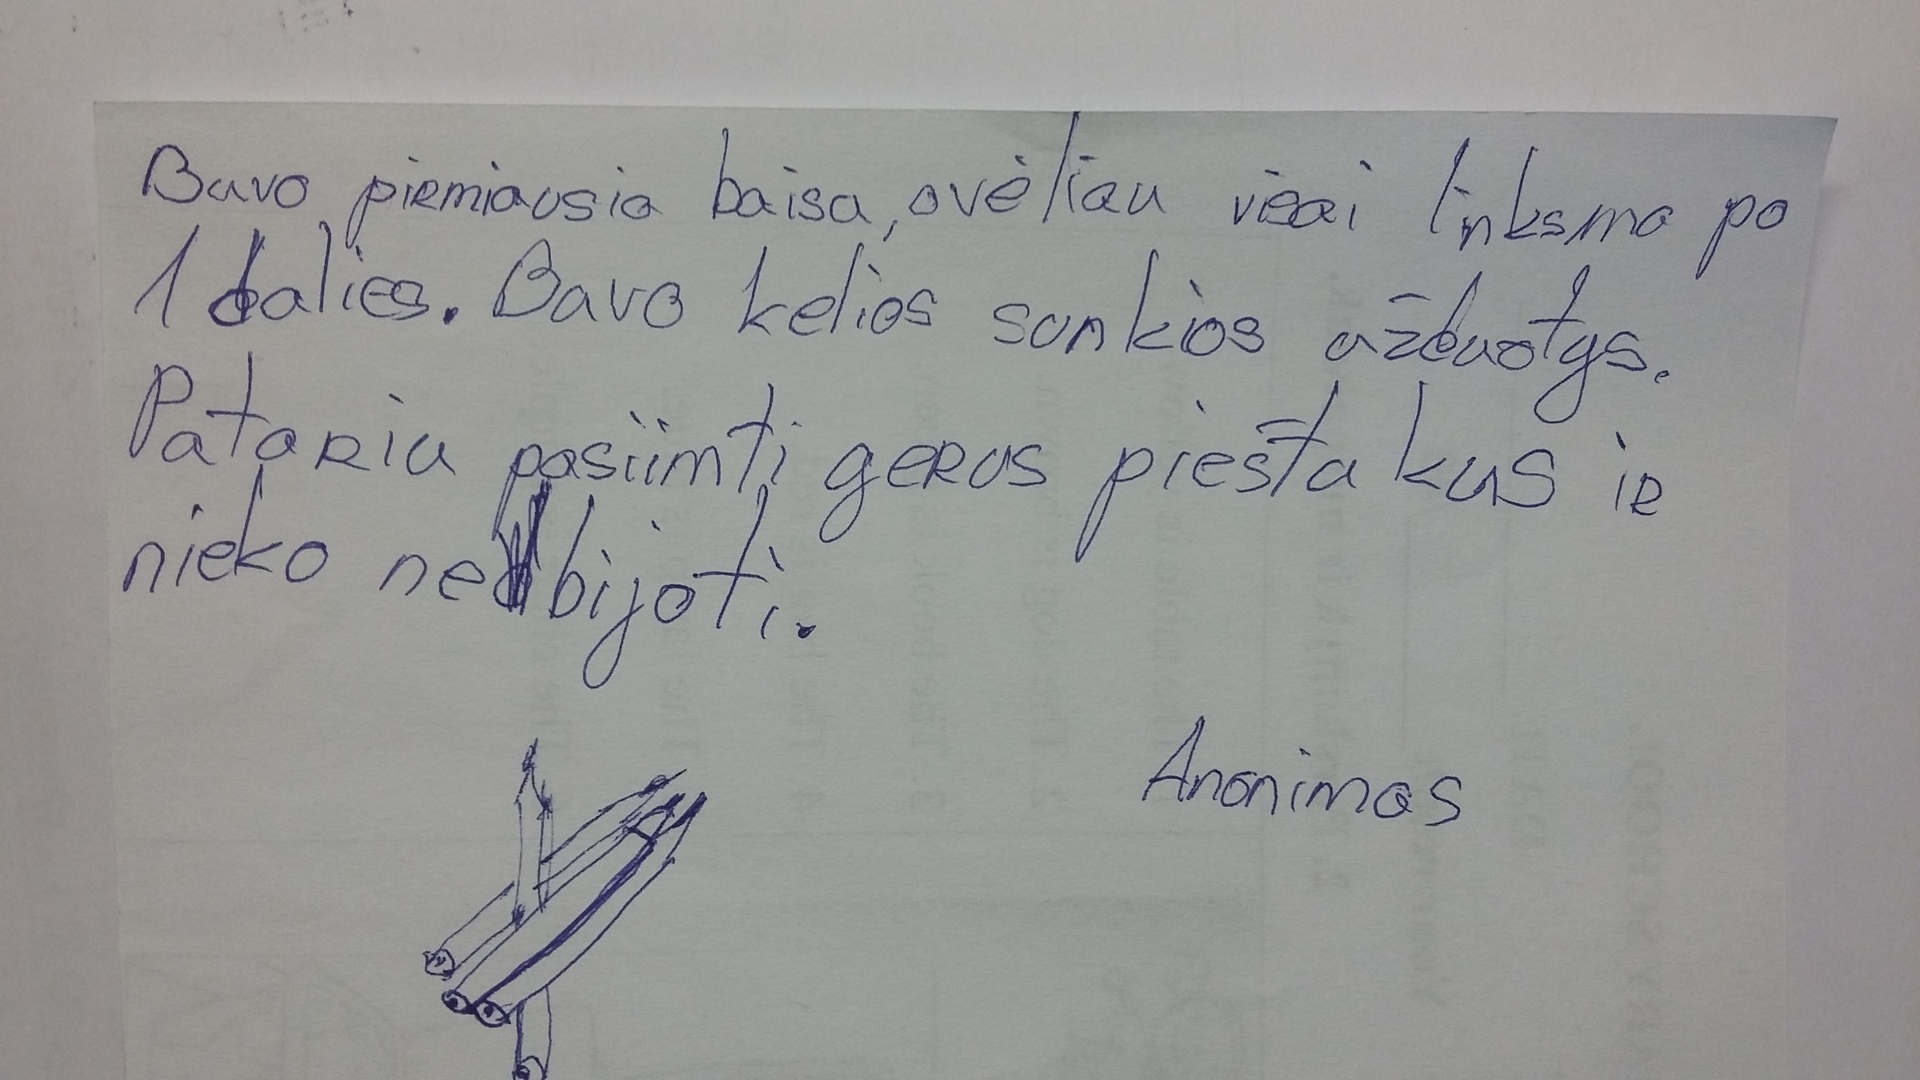 Buvo pirmiausia baisu, ovėliau visai linksma po
1 dalies. Buvo kelios sunkios užduotys.
Patariu pasiimti gerus pieštukus ir
nieko nebijoti.
Anonimas